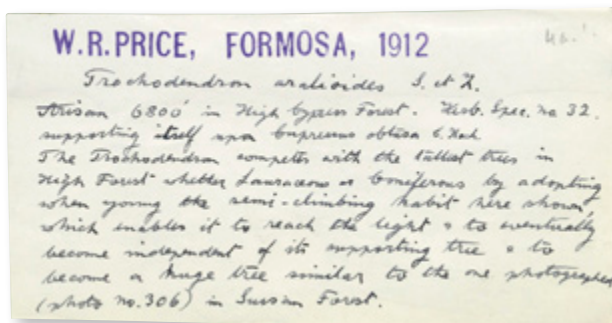 W.R.PRICE, FORMOSA, 1912
Trochodendron aralioides S. et Z.
Arisan 6800' in High Cypress Forest. Herb. Spec. no 32.
supporting itself upon Cupressus obtusa C. Koch
The Trochodendron competes with the tallest trees in
High Forest whether Lauraceous or Coniferous by adopting
when young the semi-climbing habit here shown,
which enables it to reach the light & to eventually
become independent of its supporting tree & to
become a huge tree similar to the one photographed
(photo no. 306) in Sussan Forest.